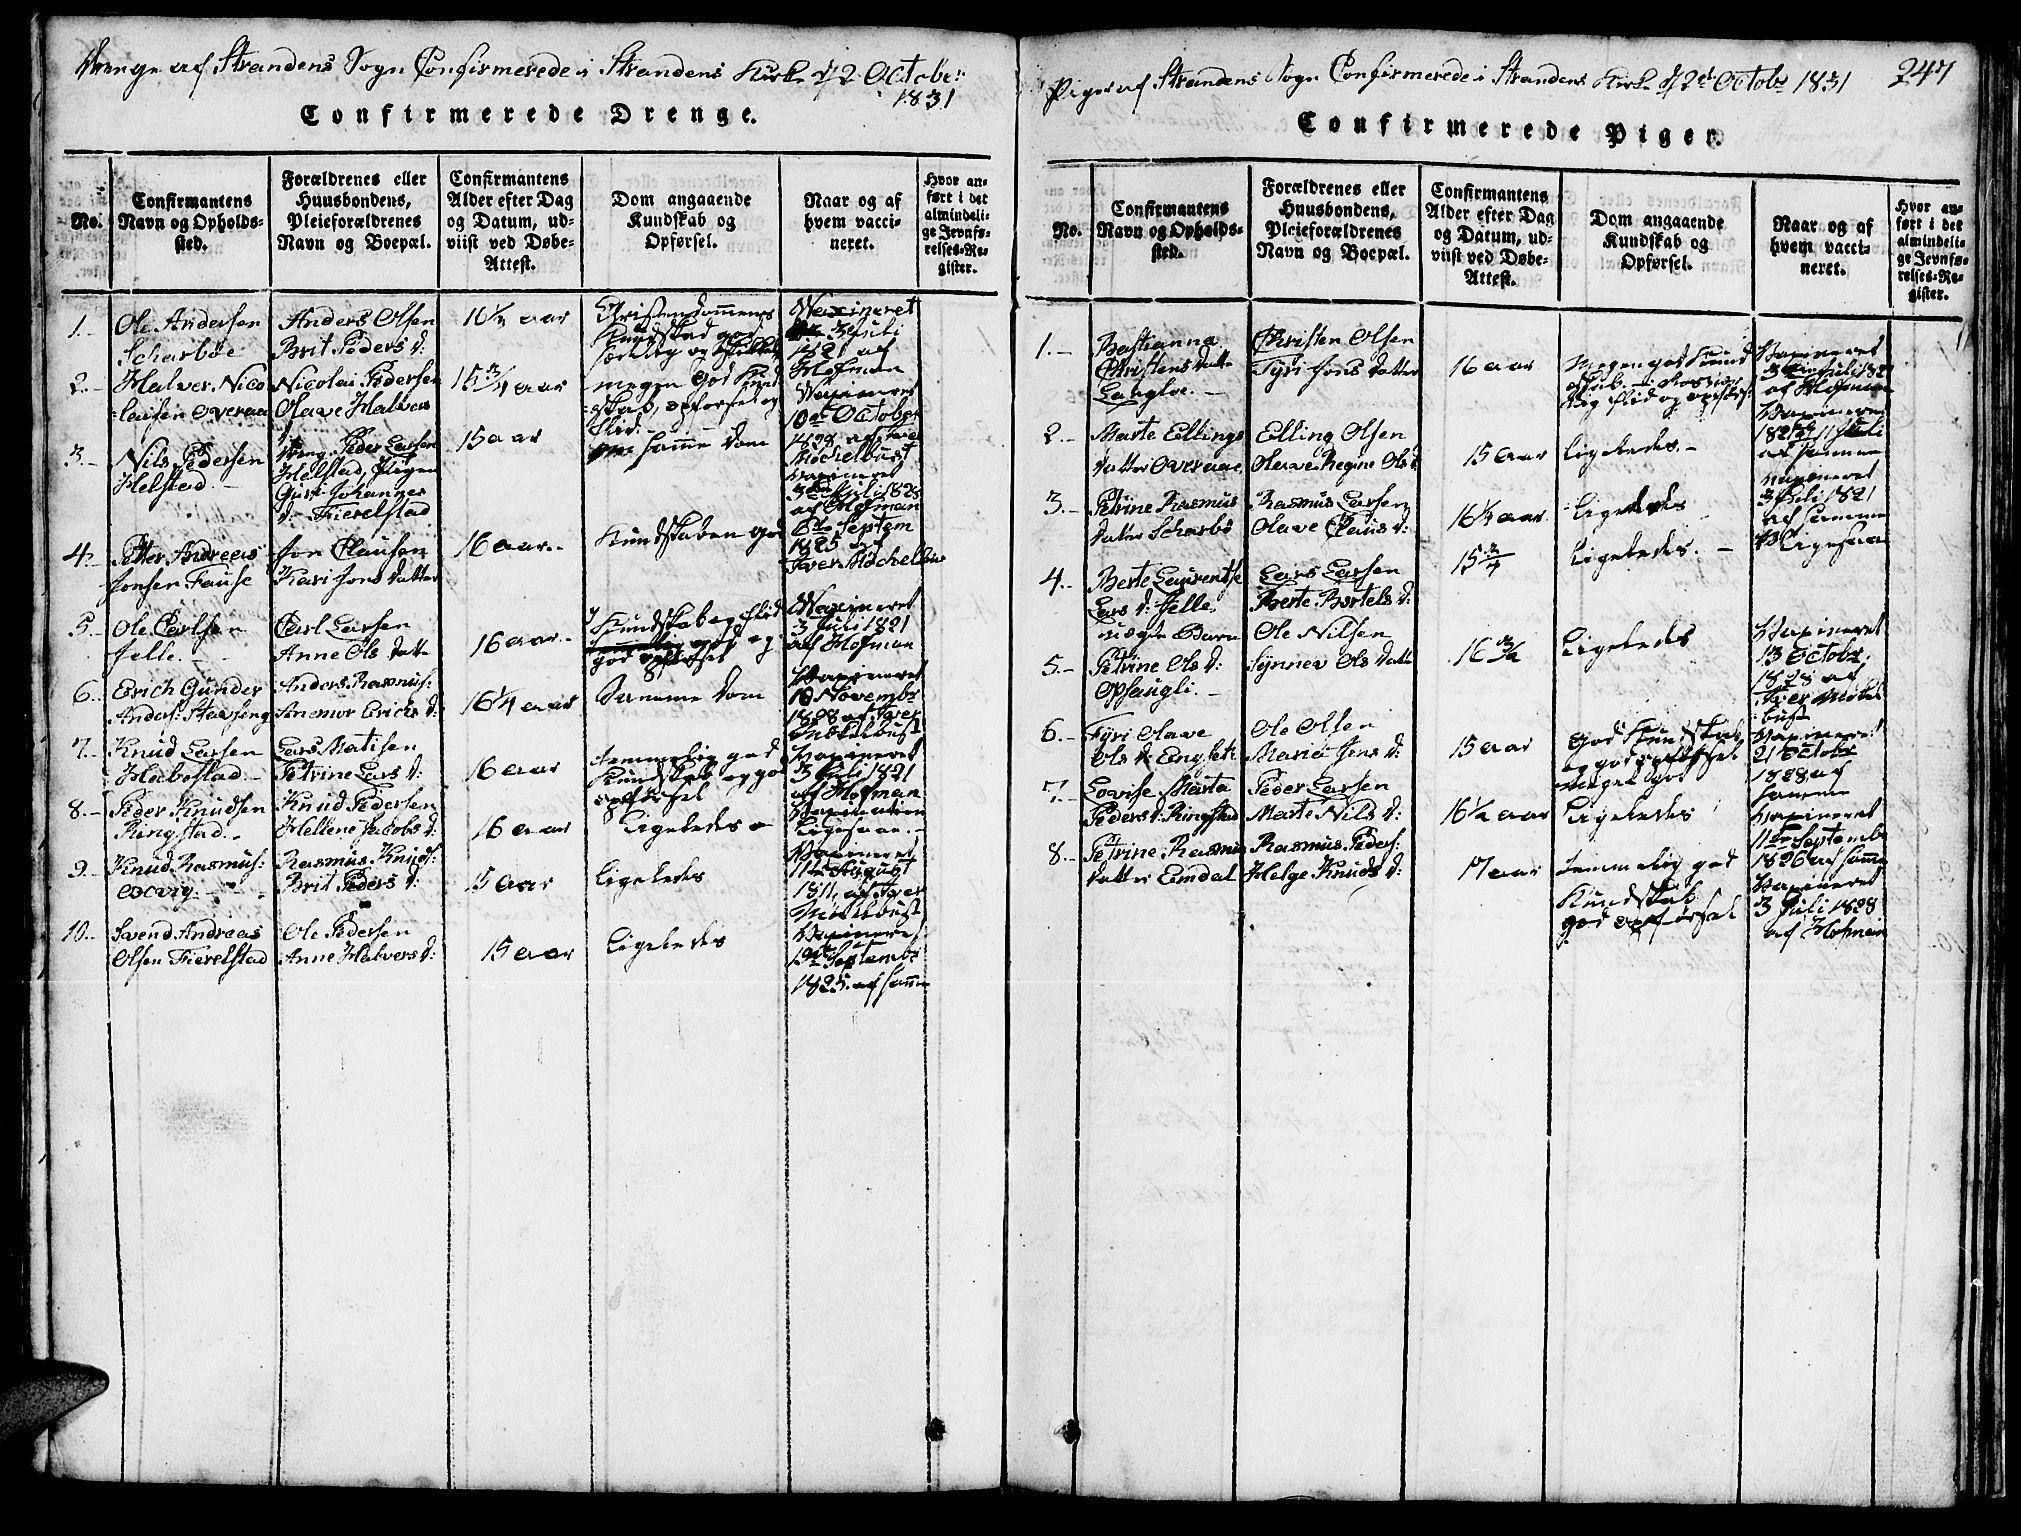 Drenge af Strandens Sogn Confirmerede i Strandens Kirke d 2 October
1831
Confirmerede Drenge.
No.
Confirmantens
Navn og Opholds-
sted.
Forældrenes eller
Huusbondens,
Pleieforældrenes
Navn og Boepæl.
Confirmantens
Alder efter Dag
og Datum, ud-
viist ved Døbe-
Attest.
Dom angaaende
Kundskab og
Opførsel.
Naar og af
hvem vacci-
neret.
Hvor an-
ført i det
almindeli-
ge Jevnfø-
relses-Re-
gister.
1.
Ole Andersen
Scharbøe
Anders Olsen
Brit Peders d:
16¼ aar
Christendommens
Kundskab god
Waxineret
3 Juli
1821 af
Hofman
2.
Halver Nico
laisen Overaa
Nicolai Pedersen
Olave Halvers
15¾ aar
megen god Kund
skab, opførsel og
flid
Waxineret
10de October
1828 af Iver
Möchelbust
3.
Nils Pedersen
Helstad
Peder Larsen
Helstad, Pigen
Guri Johannes
d: Fierelstad
15 aar
samme Dom
Vaxineret
3die Juli 1825
af Hofman
4.
Petter Andreas
Jonsen Fause
Jon Clausen
Kari Jons datter
16 aar
Kundskaben god
6te Septem
1825 af
Iver Möchelbu
5.
Ole Carlsen
Jelle
Carl Larsen
Anne Ols datte
16 aar
Kundskab og flid
god og
god opførsel
Waxineret
3 Juli 1821
af Hofman
6.
Erich Gunder
Anders: Stavseng
Anders Rasmus:
Anemor Erichs d:
16¼ aar
Samme Dom
Vaxineret
10 Novembr
1828 af Iver
Möchelbust
7.
Knud Larsen
Habostad
Lars Matisen
Petrine Lars d:
16 aar
temmelig god
Kundskab og god
opførsel
Vaxineret
3 Juli 1821
af Hofman
8.
Peder Knudsen
Ringstad
Knud Pedersen
Hellene Jacobs d:
16 aar
Ligeledes
Vaxination
Ligesaa
9.
Knud Rasmus:
Ocvig
Rasmus Knuds:
Brit Peders d:
15 aar
Ligeledes
Vaxineret
11te August
1811, af Iver
Möchelbust
10.
Svend Andreas
Olsen Fierelstad
Ole Pedersen
Anne Halvers d:
15 aar
Ligeledes
Vaxineret
Septembr
1825. af samme
Piger af Strandens Sogn Confirmerede i Strandens Kirke d 2d Octobr 1831
247
Confirmerede Piger.
No.
Confirmantens
Navn og Opholds-
sted.
Forældrenes eller
Huusbondens,
Pleieforældrenes
Navn og Boepæl.
Confirmantens
Alder efter Dag
og Datum, ud-
viist ved Døbe-
Attest.
Dom angaaende
Kundskab og
Opførsel.
Naar og af
hvem vacci-
neret.
Hvor an-
ført i det
almindeli-
ge Jevnfø-
relses-Re-
gister.
1.
Bastianna
Christens datte
Langloe.
Christen Olsen
Tyri Jons datter
16 aar
Megen god Kund
skab
flid og opførs:
Vaxineret
3die Juli 1821
af Hofman
2.
Marte Ellings
datter Overaae
Elling Olsen
Olave Regine Ols d:
15 aar
Ligeledes.
Vaxineret
11 Juli
af samme
3.
Petrine Rasmus
datter Scharbö
Rasmus Larsen
Olave Claus d:
16¼ aar
Ligeledes
Vaxineret
3 Juli 1821
af samme
4.
Berte Laurentse
Lars d: Jelle
Lars Larsen
Berte Bertels d:
15¾
Ligeledes.
Ligesaa
5.
uægte Barn
Petrine Ols d:
Opsaugli.
Ole Nilsen
Synnev Ols datte
16¾
Ligeledes
Vaxineret
13 Octobr.
1828 af
Iver Möchel
bust
6.
Tyri Olave
Ols d: Engset:
Ole Olsen
Marie Jens d:
15 aar
God Kundskab
og god opførsel
meget god
Vaxineret
21 Octobr
1828 af
samme
7.
Lovise Marta
Peders d: Ringstad
Peder Larsen
Marte Nils d:
16½ aar
Ligeledes
Vaxineret
11te Septembr
1826 af samme
8.
Petrine Rasmus
datter Eindal
Rasmus Peders:
Helge Knuds d:
17 aar
Temmelig god
Kundskab
god opførsel
Vaxineret
3 Juli 1828
af Hofman